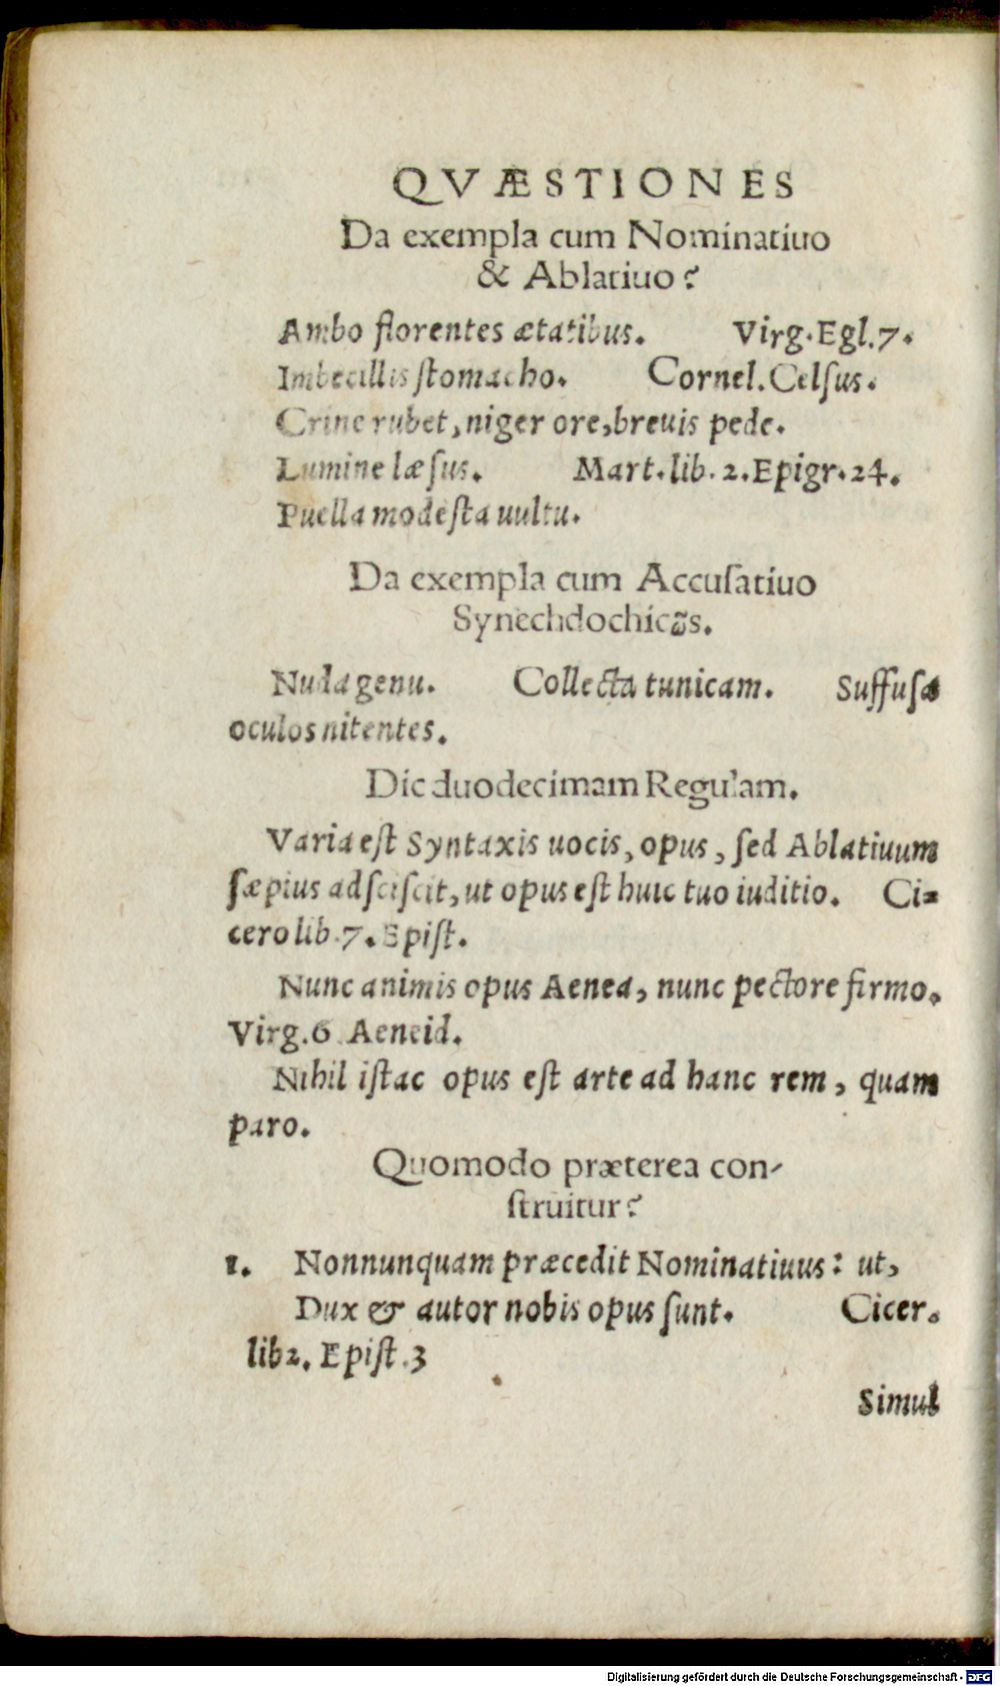 QVÆSTIONES
Da exempla cum Nominatiuo
& Ablatiuo?
Ambo florentes ætatibus. Virg. Egl. 7.
Imbecillis ſtomacho. Cornel. Celſus.
Crine rubet, niger ore, breuis pede.
Lumine læſus. Mart. lib. 2. Epigr. 24.
Puella modeſta uultu.
Da exempla cum Accuſatiuo
Synechdochicῶs.
Nuda genu. Collecta tunicam. Suffuſa
oculos nitentes.
Dic duodecimam Regulam.
Varia eſt Syntaxis uocis, opus, ſed Ablatiuum
ſæpius adſciſcit, ut opus eſt huic tuo iuditio. Ci=
cero lib. 7. Epiſt.
Nunc animis opus Aenea, nunc pectore firmo.
Virg. 6 Aeneid.
Nihil iſtac opus eſt arte ad hanc rem, quam
paro.
Quomodo præterea con-
ſtruitur?
1. Nonnunquam præcedit Nominatiuus: ut,
Dux & autor nobis opus ſunt. Cicer.
lib2. Epiſt. 3
Simul
Digitalisierung gefördert durch die Deutsche Forschungsgemeinschaft - DFG